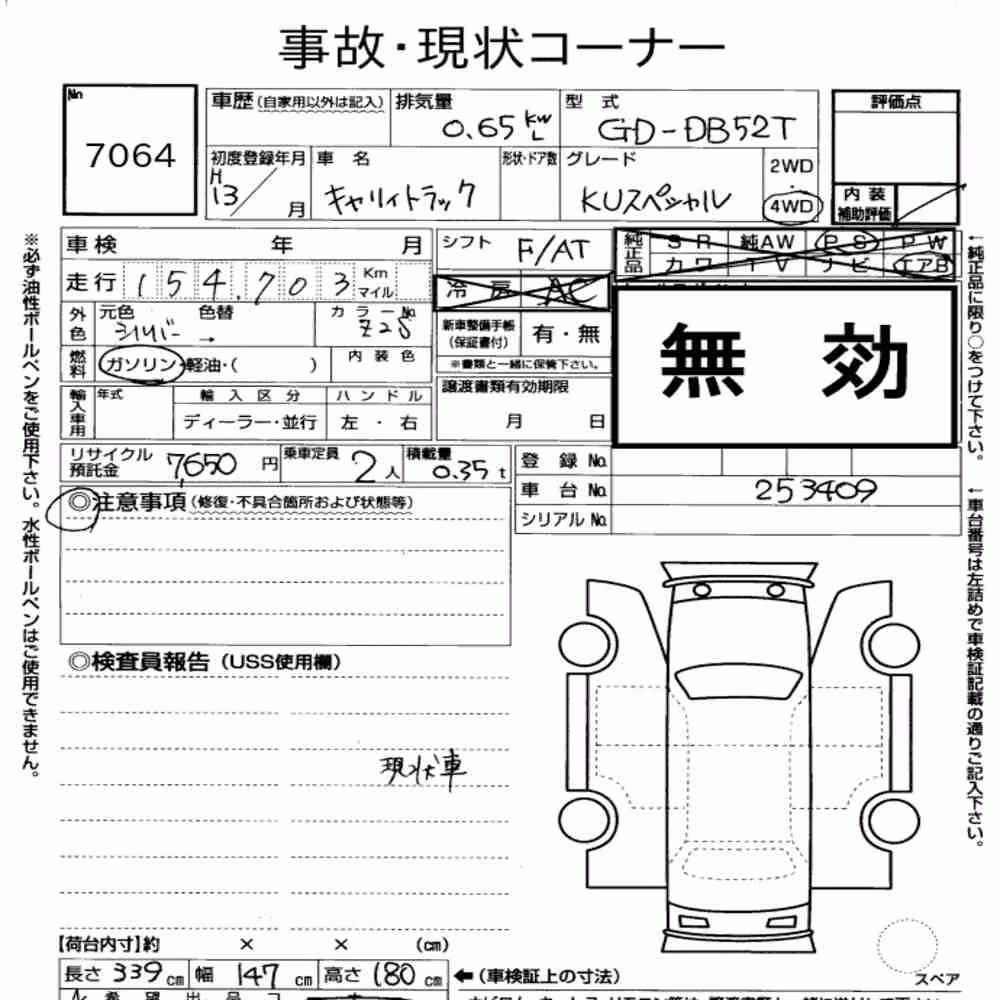 事故・現状コーナー
No.
7064
車歴（自家用以外は記入）
排気量
0.65 kw L
型 式
GD-DB52T
評価点
初度登録年月
H13 / 月
車 名
キャリイトラック
形状・ドア数
グレード
KUスペシャル
2WD
・
4WD
内 装
補助評価
※必ず油性ボールペンをご使用下さい。水性ボールペンはご使用できません。
車 検 年 月
走 行 154,703 Km マイル
外色
元色 シルバー
色替 →
カラーNo. Z2S
燃料
ガソリン・軽油・( )
内 装 色
輸入車用
年式
輸 入 区 分
ディーラー・並行
ハ ン ド ル
左 ・ 右
シフト F/AT
冷 房 AC
新車整備手帳
（保証書付）
有・無
※書類と一緒に保管下さい。
譲渡書類有効期限
月 日
純正品
S R 純AW P S P W
カワ T V ナビ エアB
無 効
←純正品に限り○をつけて下さい。
リサイクル
預託金
7,650 円
乗車定員 2 人
積載量 0.35 t
登 録 No.
車 台 No. 253409
シリアル No.
←車台番号は左詰めで車検証記載の通りご記入下さい。
◎注意事項（修復・不具合箇所および状態等）
◎検査員報告（USS使用欄）
現状車
【荷台内寸】約 × × (cm)
長さ 339 cm 幅 147 cm 高さ 180 cm
←（車検証上の寸法）
スペア